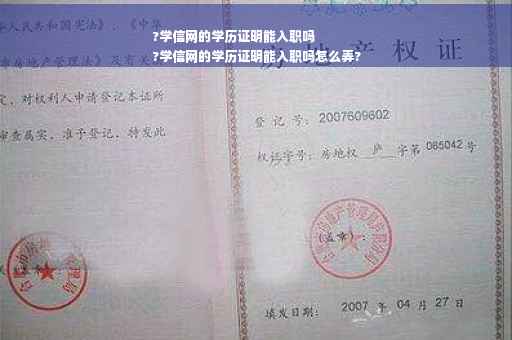 ?学信网的学历证明能入职吗
?学信网的学历证明能入职吗怎么弄?
共和国宪法》、《中华
市房地产管理法》及有关
定，对权利人申请登记本证所
审查属实，准予登记，特发此
地产权证
登 记 号：2007609602
权证字号：房地权 庐 字第 085042 号
(盖章)：
填发日期： 2007 年 04 月 27 日